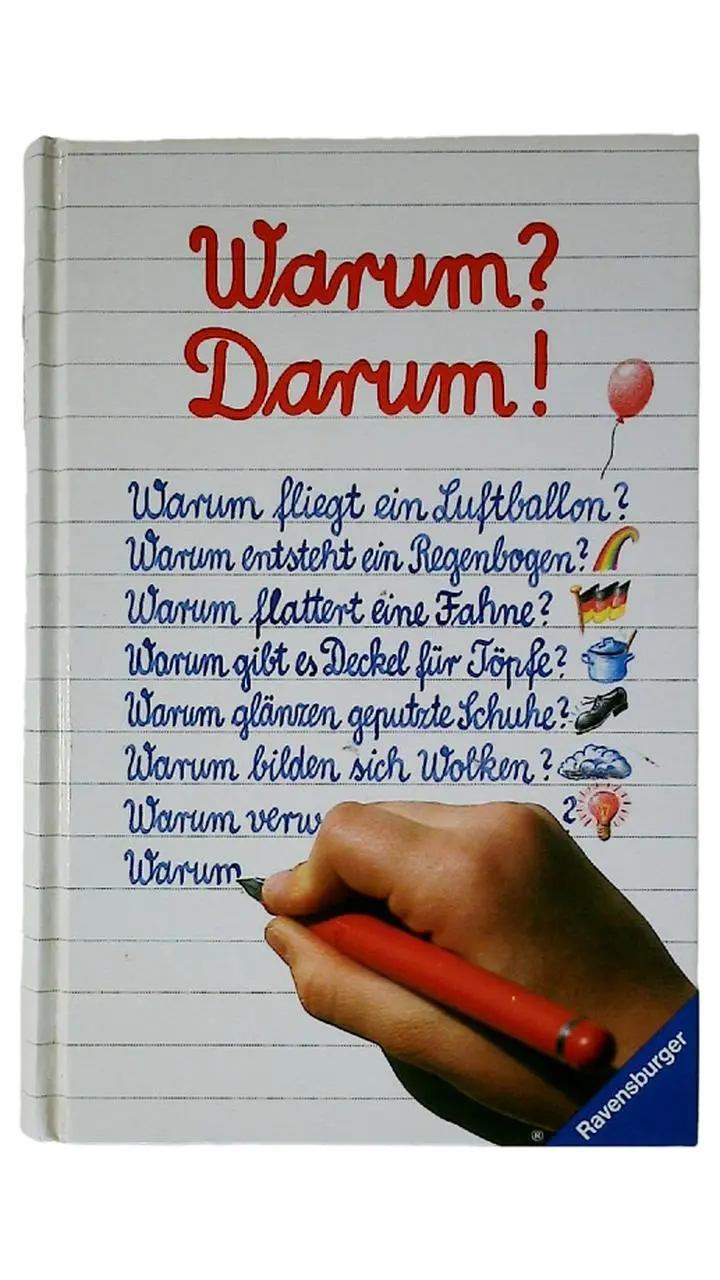 Warum?
Darum!
Warum fliegt ein Luftballon?
Warum entsteht ein Regenbogen?
Warum flattert eine Fahne?
Warum gibt es Deckel für Töpfe?
Warum glänzen geputzte Schuhe?
Warum bilden sich Wolken?
Warum verw ?
Warum
Ravensburger
®